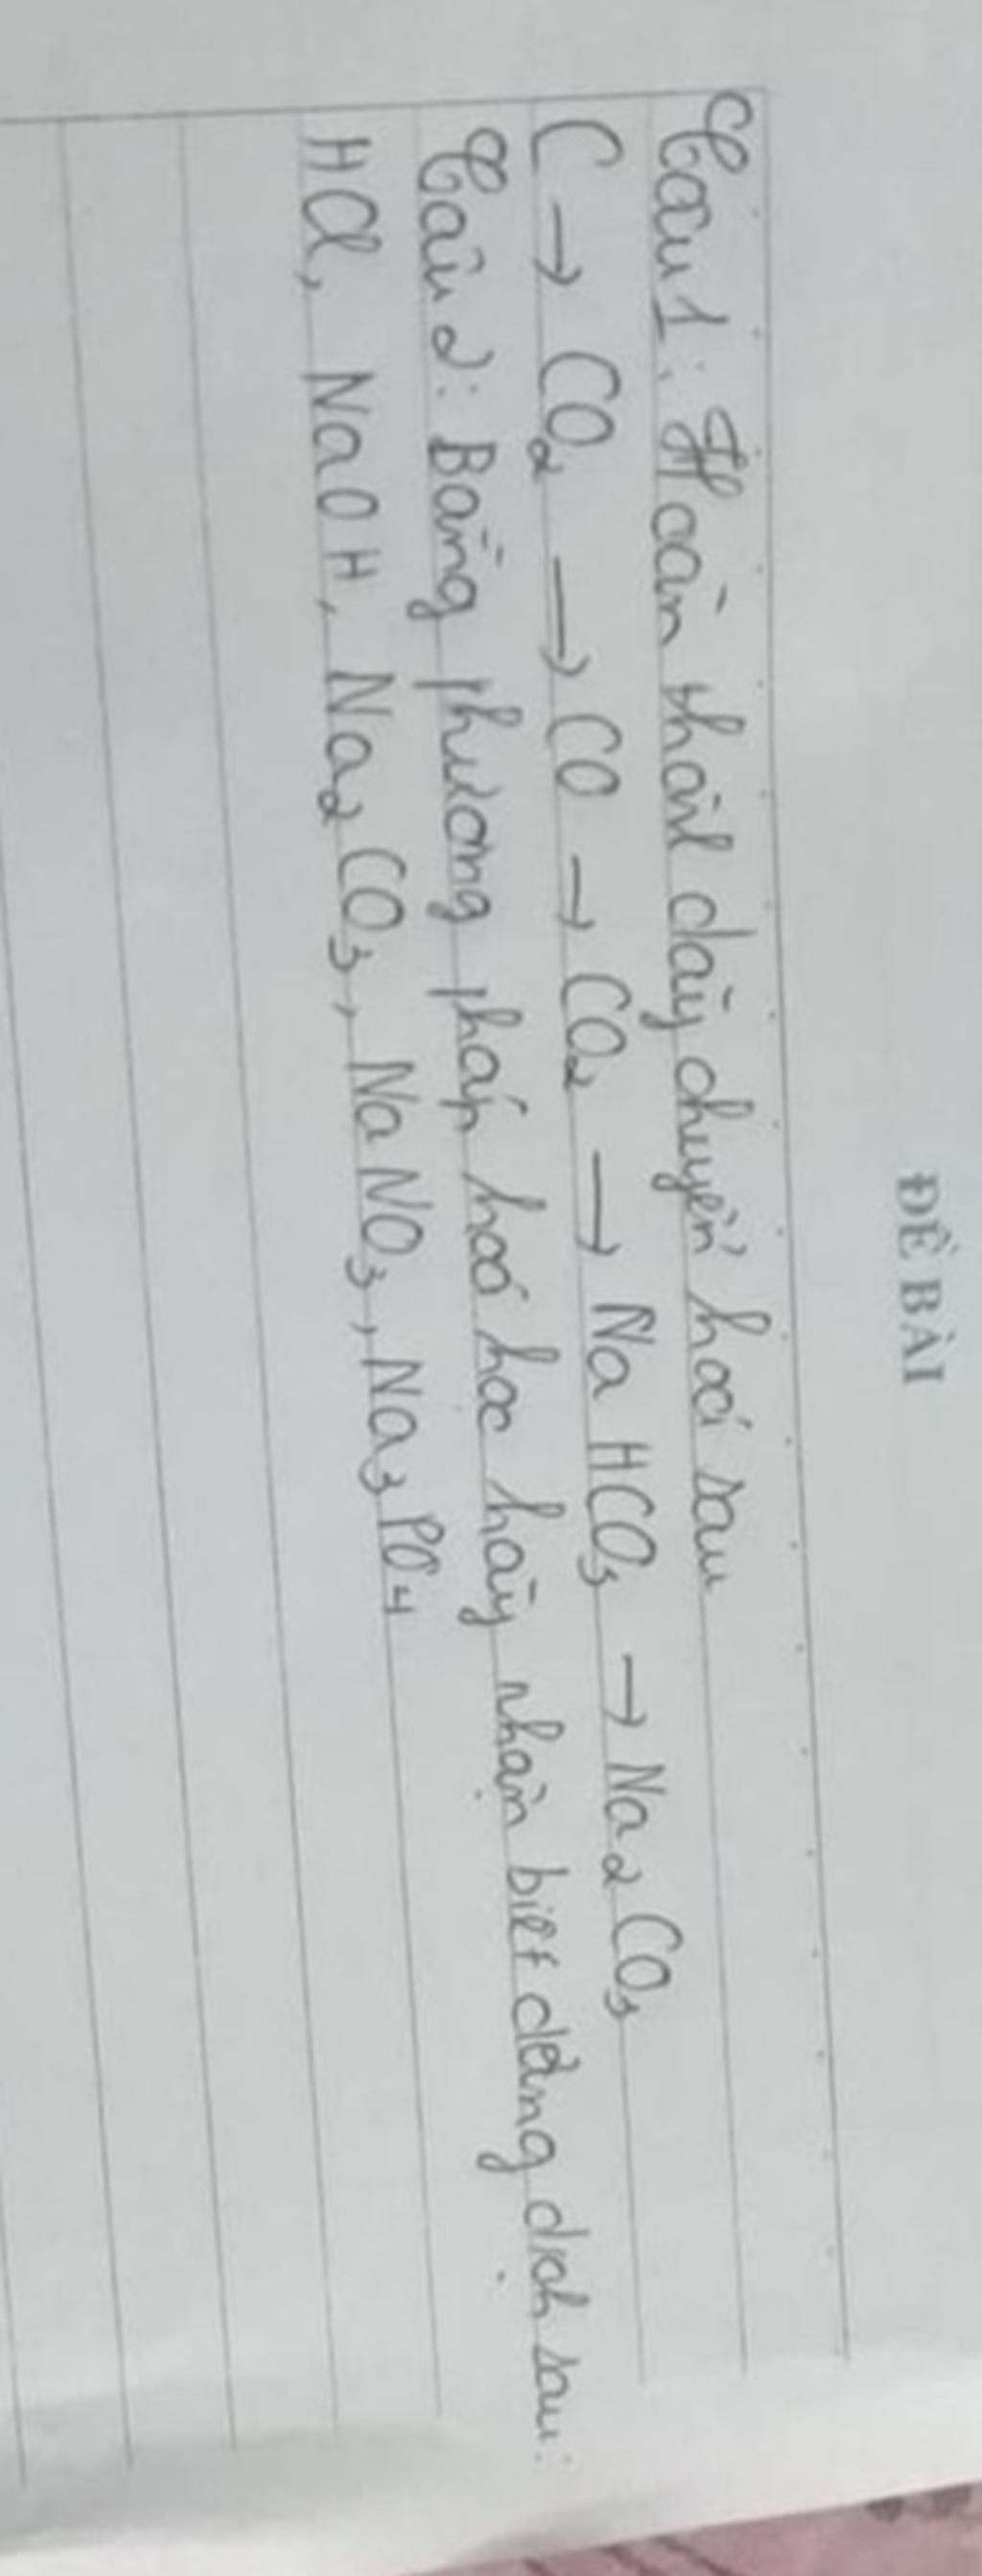 ĐỀ BÀI
Câu 1: Hoàn thành dãy chuyển hoá sau
C → CO₂ → CO → CO₂ → NaHCO₃ → Na₂CO₃
Câu 2: Bằng phương pháp hoá học hãy nhận biết dung dịch sau:
HCl, NaOH, Na₂CO₃, NaNO₃, Na₃PO₄